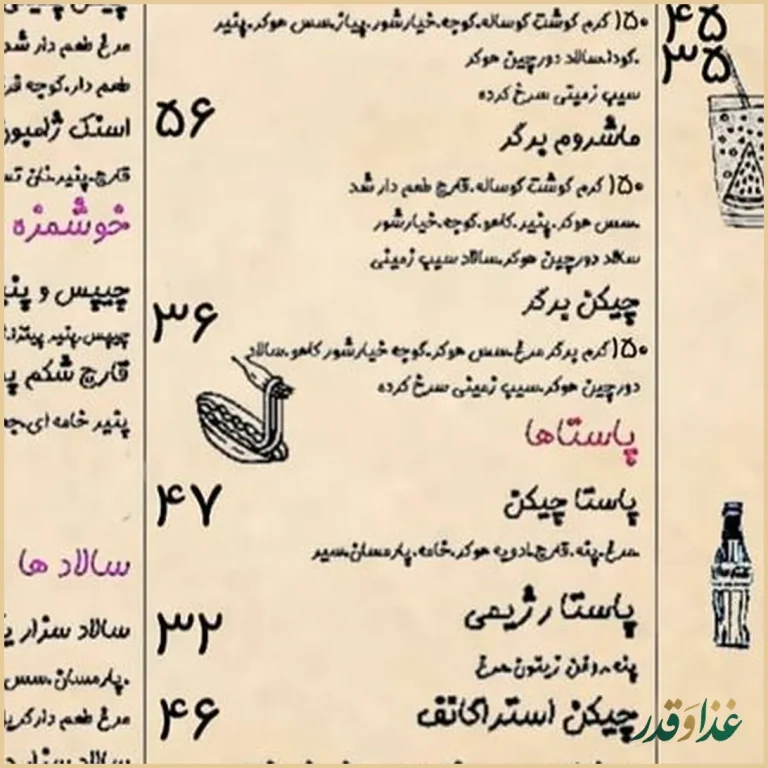 ۴۵
۳۵
۱۵۰ گرم گوشت گوساله.گوجه.خیارشور.پیاز.سس هوکر.پنیر
.گودا.سالاد دورچین هوکر
سیب زمینی سرخ کرده
ماشروم برگر ۵۶
۱۵۰ گرم گوشت گوساله.قارچ طعم دار شد
.سس هوکر.پنیر.کاهو.گوجه.خیارشور
سالاد دورچین هوکر.سالاد سیب زمینی
چیکن برگر ۳۶
۱۵۰ گرم برگر مرغ.سس هوکر.گوجه خیارشور کاهو.سالاد
دورچین هوکر.سیب زمینی سرخ کرده
پاستاها
پاستا چیکن ۴۷
.مرغ.پنه.قارچ.ادویه هوکر.خامه.پارمسان.سیر
پاستا رژیمی ۳۲
پنه.روغن زیتون.مرغ
چیکن استراگانف ۴۶
مرغ طعم دار شد
طعم دار.گوجه
اسنک ژامبون
قارچ.پنیر.نان
خوشمزه
چیپس و پنی
چیپس.پنیر پیتزا
قارچ شکم
پنیر خامه ای
سالاد ها
سالاد سزار
.پارمسان.سس
مرغ طعم دار
سالاد سزار
غذا و قدر